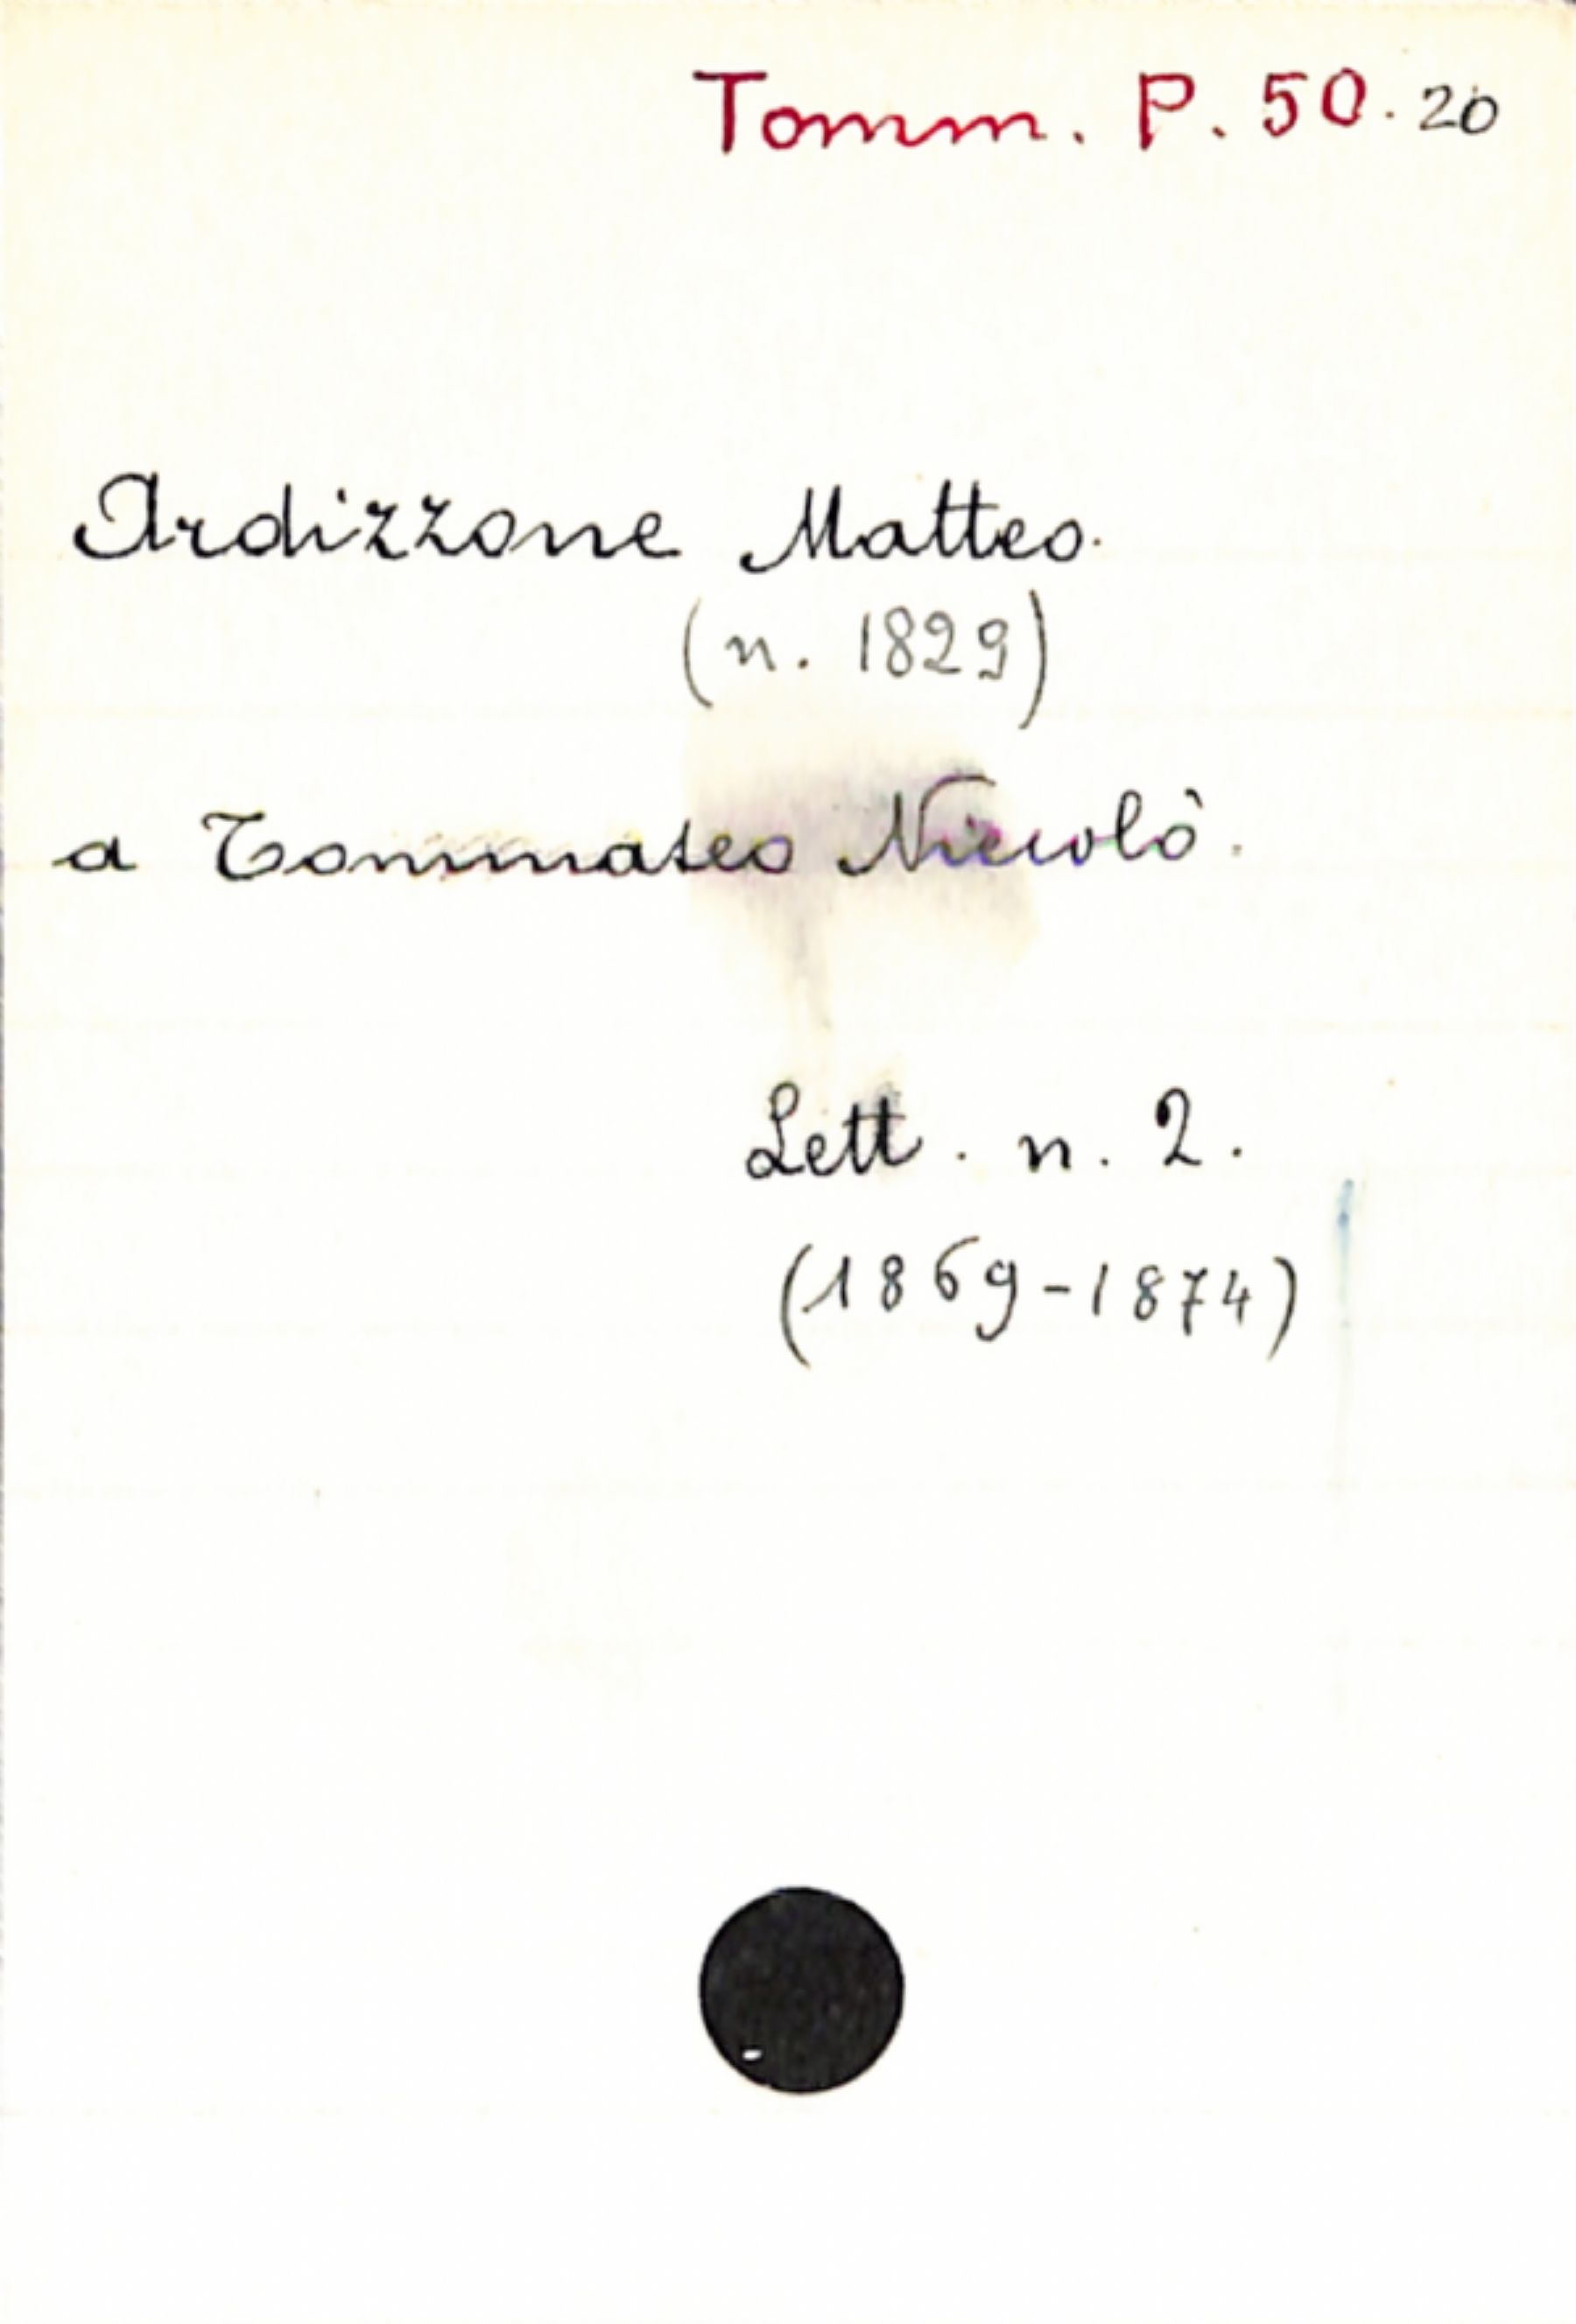 Tomm. P. 50. 20
Ardizzone Matteo.
(n. 1829)
a Tommaseo Niccolò.
Lett. n. 2.
(1869-1874)